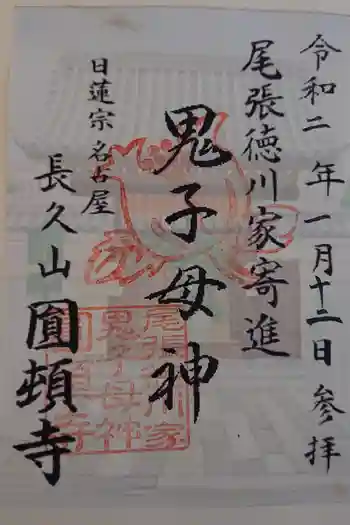 令和二年一月十二日 参拝
尾張徳川家寄進
鬼子母神
日蓮宗 名古屋
長久山 圓頓寺
尾張徳川家
鬼子母神
圓頓寺